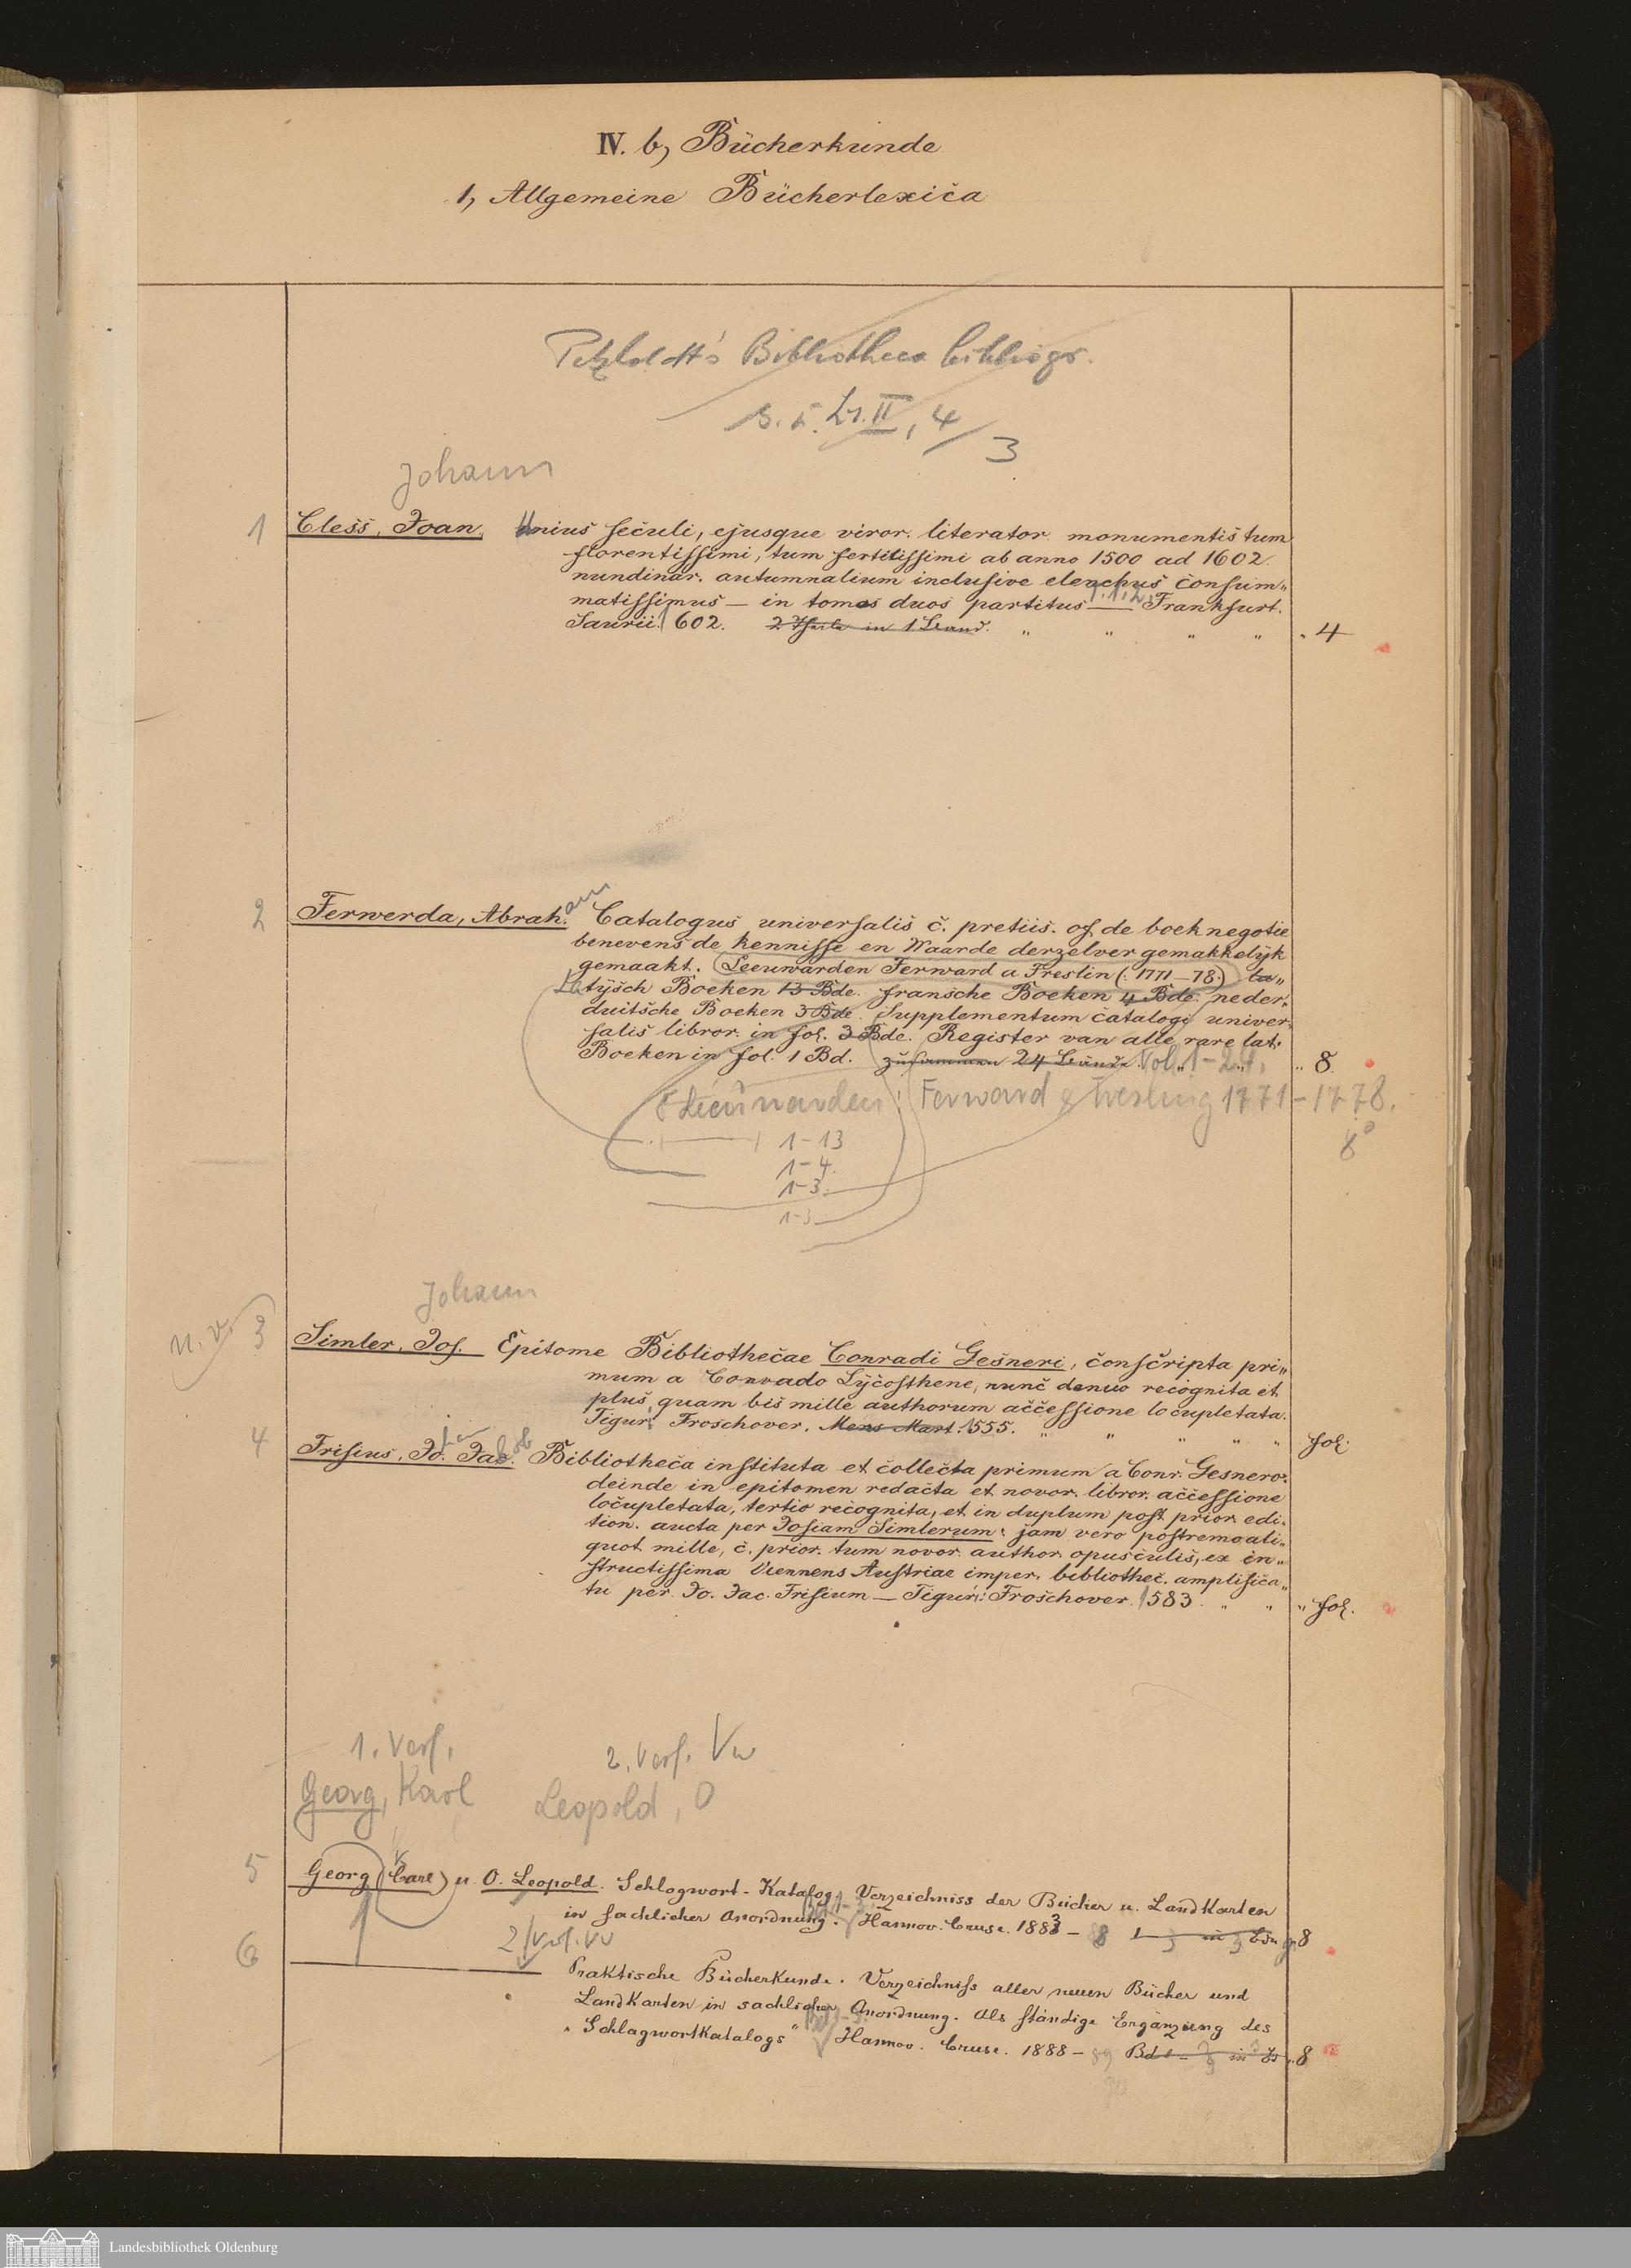 IV. b, Bücherkunde
1, Allgemeine Bücherlexica
Petzholdt's Bibliotheca bibliogr.
II, 4/3
Johann
1 Cless, Joan. Unius seculi, ejusque viror. literator. monumentis tum
florentissimi, tum fertilissimi ab anno 1500 ad 1602.
nundinar. autumnalium inclusive elenchus consum„
matissimus — in tomos duos partitus — Frankfurt.
Saurii. 1602. 2 Theile in 1 Band. „ „ „ „ „ 4
2 Ferwerda, Abrah.am Catalogus universalis c. pretiis. of de boek negotie
benevens de kennisse en Waarde derzelver gemakkelijk
gemaakt. Leeuwarden Ferward a Treslin (: 1771–78:) la„
La tijsch Boeken 13 Bde. fransche Boeken 4 Bde. neder„
duitsche Boeken 3 Bde. Supplementum catalogi univer„
salis libror. in fol. 3 Bde. Register van alle rare lat.
Boeken in fol. 1 Bd. zusammen 24 Bände. Vol. 1–24. „ 8.
Leeuwarden: Ferward & Tresling 1771–1778.
8°
1–13
1–4.
1–3.
1–3
Johann
n. v. 3 Simler, Jos. Epitome Bibliothecae Conradi Gesneri, conscripta pri„
mum a Conrado Lycosthene, nunc denuo recognita et
plus quam bis mille authorum accessione locupletata.
Tiguri Froschover. Mens Mart. 1555. „ „ „ „ „ fol.
4 Frisius, Jo. Jac. Bibliotheca instituta et collecta primum a Conr. Gesnero.
deinde in epitomen redacta et novor. libror. accessione
locupletata, tertio recognita, et in duplum post prior. edi„
tion. aucta per Josiam Simlerum: jam vero postremo ali„
quot mille, c. prior. tum novor. author. opusculis, ex in„
structissima Viennens Austriae imper. bibliothec. amplifica„
ta per Jo. Jac. Frisium — Tiguri: Froschover. 1583. „ „ „ fol.
1. Verf. 2. Verf. Vw
Georg, Karl Leopold, O
5 Georg (Carl) u. O. Leopold. Schlagwort-Katalog. Verzeichniss der Bücher u. Landkarten
in sachlicher Anordnung. Hannov. Cruse. 1883 – 8
2 Verf. Vw
6 Praktische Bücherkunde. Verzeichniss aller neuen Bücher und
Landkarten in sachlicher Anordnung. Als ständige Ergänzung des
„Schlagwortkatalogs" Hannov. Cruse. 1888 – 89 „ 8
Landesbibliothek Oldenburg